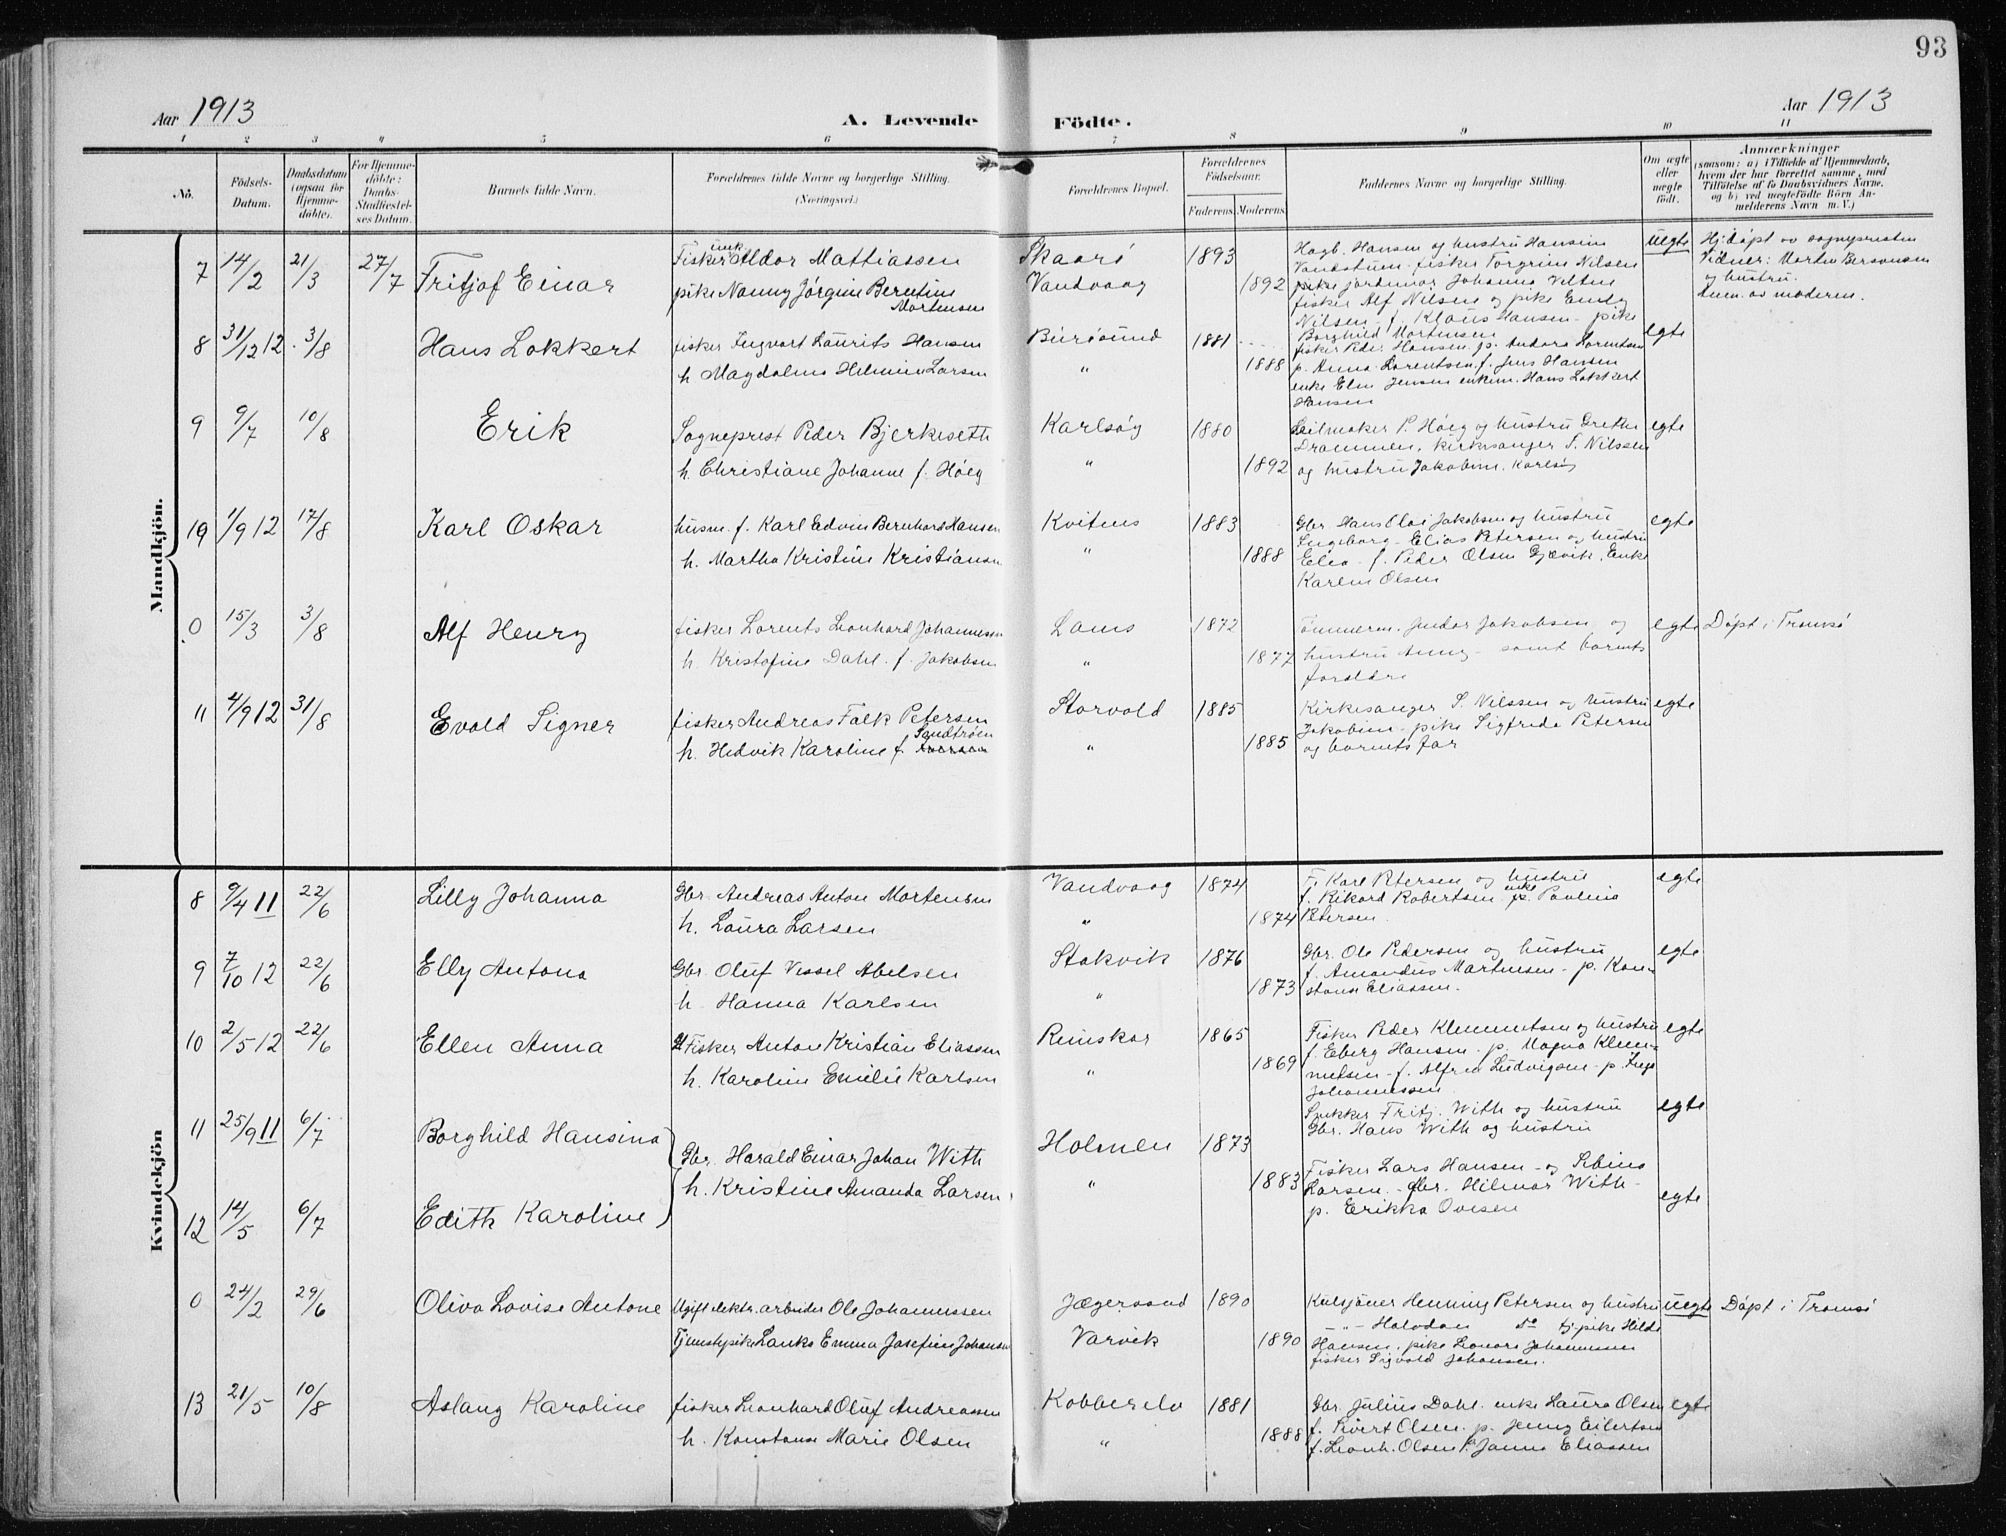 93
Aar 1913
A. Levende Födte.
Aar 1913
1 2 3 4 5 6 7 8 9 10 11
No.
Födsels-Datum.
Daabsdatum (ogsaa for Hjemme-döbte).
For Hjemme-döbte: Daabs-Stadfæstel-ses Datum.
Barnets fulde Navn.
Forældrenes fulde Navne og borgerlige Stilling. (Næringsvei.)
Forældrenes Bopæl.
Forældrenes Födselsaar.
Faderens. Moderens.
Faddernes Navne og borgerlige Stilling.
Om ægte eller uægte født.
Anmærkninger
(saasom: a) i Tilfælde af Hjemmedaab, hvem der har forrettet samme, med Tilföielse af to Daabsvidners Navne, og b) ved uægtefödte Börn An-melderens Navn m. V.)
Mandkjön.
7 14/2 21/3 27/7 Fritjof Einar
Fisker unk. Aldor Mattiassen
pike Nanny Jörgine Berntine Mortensen
Skaarö 1893
Vandvaag 1892
Hagb. Hansen og hustru Hansine
Vandstuen. fisker Torgrim Nilsen
pike jordmor Johanna Velten
fisker Alf Nilsen og pike Emily
Nilsen f. Klaus Hansen - pike
Borghild Mortensen
uegte
Hj.döpt av sognepresten
Vidner: Morten Berntsen
og hustru.
Anm. av moderen.
8 31/12 12 3/8 Hans Lokkert
fisker Ingvart Laurits Hansen
h Magdalene Helmine Larsen
Burösund 1881
" 1888
fisker Peder Hansen. p. Andora Lorentsen
p. Anna Lorentsen. f. Jens Hansen
enke Elen Jensen enkem. Hans Lokkert
Hansen
egte
9 9/7 10/8 Erik
Sogneprest Peder Bjerkeseth
h. Christiane Johanne f. Höeg
Karlsöy 1880
" 1892
Seilmaker P. Höeg og hustru Grethe
Drammen. kirkesanger S. Nilssen
og hustru Jakobine. Karlsöy
egte
10 1/9 12 17/8 Karl Oskar
husm. f. Karl Edvin Bernhard Hansen
h. Martha Kristine Kristiansen
Kvitnes 1883
" 1888
Gbr. Hans Olai Jakobsen og hustru
Ingeborg - Elias Petersen og hustru
Elea - f. Peder Olsen Gjævik. Enke
Karlm Olsen
egte
0 15/3 3/8 Alf Henry
fisker Lorents Leonhard Johannesen
h. Kristofine Dahl. f. Jakobsen
Lanes 1872
" 1877
Tömmerm. Jendor Jakobsen og
hustru Anny - samt barnets
foreldre
egte Döpt i Tromsö
11 4/9 12 31/8 Evald Signer
fisker Andreas Falk Petersen
h. Hedvik Karoline f. Sandtröen
Storvold 1885
" 1885
Kirkesanger S. Nilssen og hustru
Jakobine. pike Sigfrida Petersen
og barnets far
egte
Kvindekjön
8 9/4 11 22/6 Lilly Johanna
Gbr. Andreas Anton Mortensen
h. Laura Larsen
Vandvaag 1874
" 1874
F. Karl Petersen og hustru
f. Rikard Robertsen enke Pauline
Petersen.
egte
9 7/10 12 22/6 Elly Antona
Gbr. Oluf Vessel Abelsen
h. Hanna Karlsen
Stakvik 1876
" 1873
Gbr. Ole Pedersen og hustru
f. Amandus Martinsen - p. Kon-
stanse Eliassen.
egte
10 2/5 12 22/6 Ellen Anna
Fisker Anton Kristian Eliassen
h. Karoline Emelie Karlsen
Reinskar 1865
" 1869
Fisker Peder Klemmetsen og hustru
f. Eberg Hansen. p. Magna Klem-
metsen - f. Alfred Ludvigsen - p. Inga
Johannessen
egte
11 25/9 11 6/7 Borghild Hansina
Gbr. Harald Einar Johan With
h. Kristine Amanda Larsen
Holmen 1873
" 1883
Snekker Fritj. With og hustru
Gbr. Hans With og hustru
Fisker Lars Hansen - og Sebine
Larsen. - gbr. Hilmar With -
p. Erikka Ovesen
egte
12 14/5 6/7 Edith Karoline
egte
0 24/2 29/6 Oliva Lovise Antone
Ugift elektr. arbeider Ole Johannessen
Tjenestepike Lauks Emma Josefine Johansen
Jægervand 1890
Varvik 1890
Kulsjöuer Henning Petersen og hustru
- " - Halvdan do tj pike Hilda
Hansen. pike Leonora Johannessen
fisker Sigvald Johansen.
uegte Döpt i Tromsö
13 21/5 10/8 Aslaug Karoline
fisker Leonhard Oluf Andreassen
h. Konstanse Marie Olsen
Kobberelv 1881
" 1888
Gbr. Julius Dahl. enke Laura Olsen
f. Sivert Olsen. p. Jenny Eilertsen
f. Leonh. Olsen P. Janna Eliassen
egte